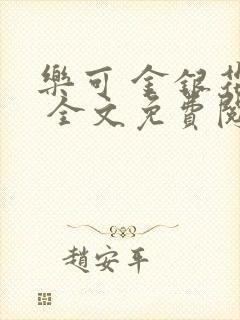 樂可 金銀花
全文免費閱
趙安平